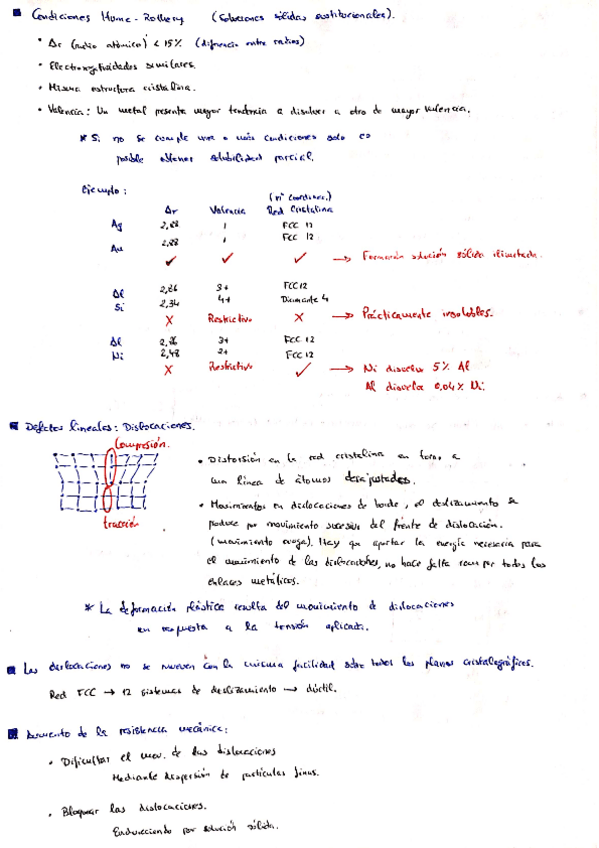 Condiciones Hume-Rothery (Soluciones sólidas sustitucionales).
• Δr (radio atómico) < 15% (diferencia entre radios)
• Electronegatividades similares.
• Misma estructura cristalina.
• Valencia: Un metal presenta mayor tendencia a disolver a otro de mayor valencia.
* Si no se cumple una o más condiciones solo es
posible obtener solubilidad parcial.
Ejemplo:
(nº coordinac.)
Δr Valencia Red Cristalina
Ag 2,88 1 FCC 12
Au 2,88 1 FCC 12
✓ ✓ ✓ → Formarán solución sólida ilimitada.
Al 2,86 3+ FCC 12
Si 2,34 4+ Diamante 4
X Restrictivo X → Prácticamente insolubles.
Al 2,86 3+ FCC 12
Ni 2,48 2+ FCC 12
X Restrictivo ✓ → Ni disuelve 5% Al
Al disuelve 0,04% Ni.
Defectos lineales: Dislocaciones.
Compresión.
tracción
• Distorsión en la red cristalina en torno a
una línea de átomos desajustados.
• Movimientos en dislocaciones de borde, el deslizamiento se
produce por movimiento sucesivo del frente de dislocación.
(movimiento oruga). Hay que aportar la energía necesaria para
el movimiento de las dislocaciones, no hace falta romper todos los
enlaces metálicos.
* La deformación plástica resulta del movimiento de dislocaciones
en respuesta a la tensión aplicada.
Las dislocaciones no se mueven con la misma facilidad sobre todos los planos cristalográficos.
Red FCC → 12 sistemas de deslizamiento → dúctil.
Aumento de la resistencia mecánica:
• Dificultar el mov. de las dislocaciones
Mediante dispersión de partículas finas.
• Bloquear las dislocaciones.
Endureciendo por solución sólida.